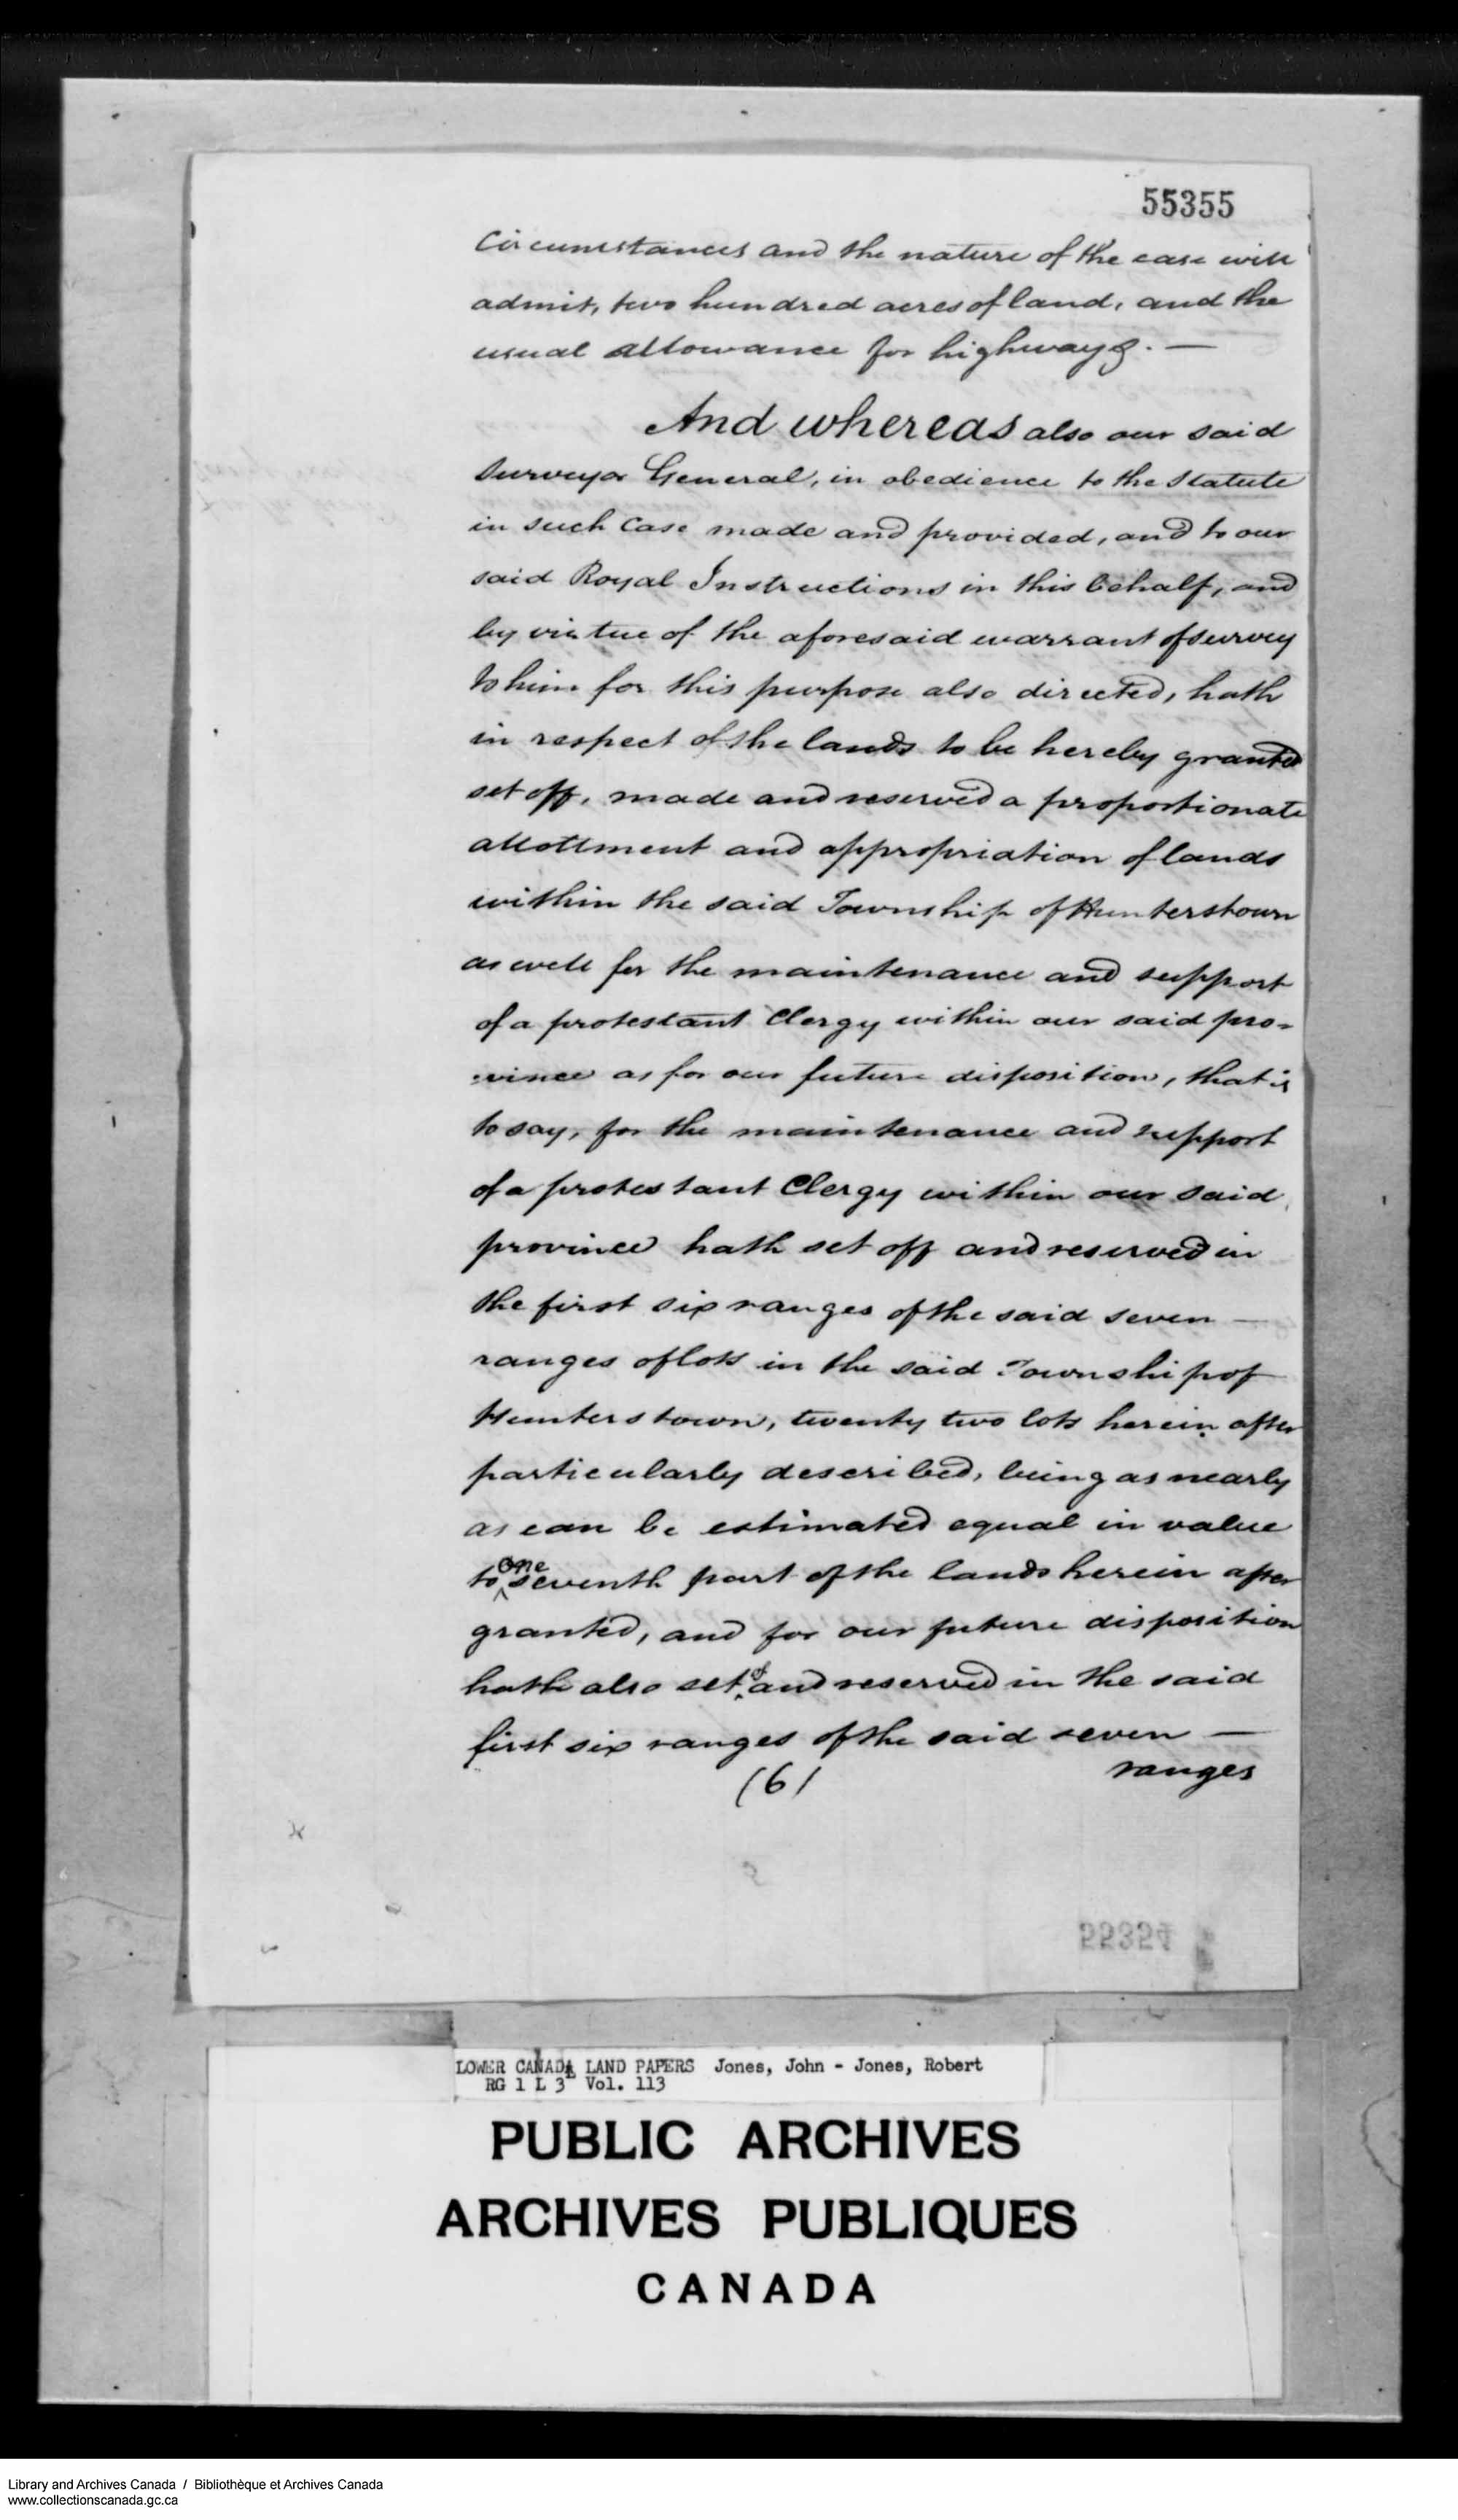 55355
Circumstances and the nature of the case will
admit, two hundred acres of land, and the
usual allowance for highways. —
And whereas also our said
Surveyor General, in obedience to the Statute
in such Case made and provided, and to our
said Royal Instructions in this behalf, and
by virtue of the aforesaid warrant of survey
to him for this purpose also directed, hath
in respect of the lands to be hereby granted
set off, made and reserved a proportionate
allottment and appropriation of lands
within the said Township of Hunterstown
as well for the maintenance and support
of a protestant Clergy within our said pro-
vince as for our future disposition, that is
to say, for the maintenance and support
of a protestant Clergy within our said
province hath set off and reserved in
the first six ranges of the said seven —
ranges of lots in the said Township of
Hunterstown, twenty two lots herein after
particularly described, being as nearly
as can be estimated equal in value
to one seventh part of the lands herein after
granted, and for our future disposition
hath also set of and reserved in the said
first six ranges of the said seven —
(6)
ranges
55354
LOWER CANADA LAND PAPERS Jones, John - Jones, Robert
RG 1 L 3 Vol. 113
PUBLIC ARCHIVES
ARCHIVES PUBLIQUES
CANADA
Library and Archives Canada / Bibliothèque et Archives Canada
www.collectionscanada.gc.ca